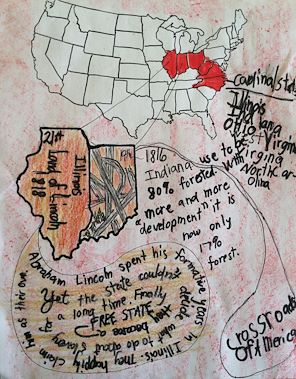 cardinal states
Illinois
Indiana
Ohio
West Virginia
Virginia
North Car-
olina
21st
Illinois
Land of Lincoln
1818
19th
1816
Indiana use to be
80% forested with
a more and more
development it is
now only
17%
forest.
Abraham Lincoln spent his formative years
in Illinois. They happily claim him as their own.
Yet the state couldn't decide
what to do about slavery
a long time. Finally they
became a
FREE STATE
Crossroads
Of America